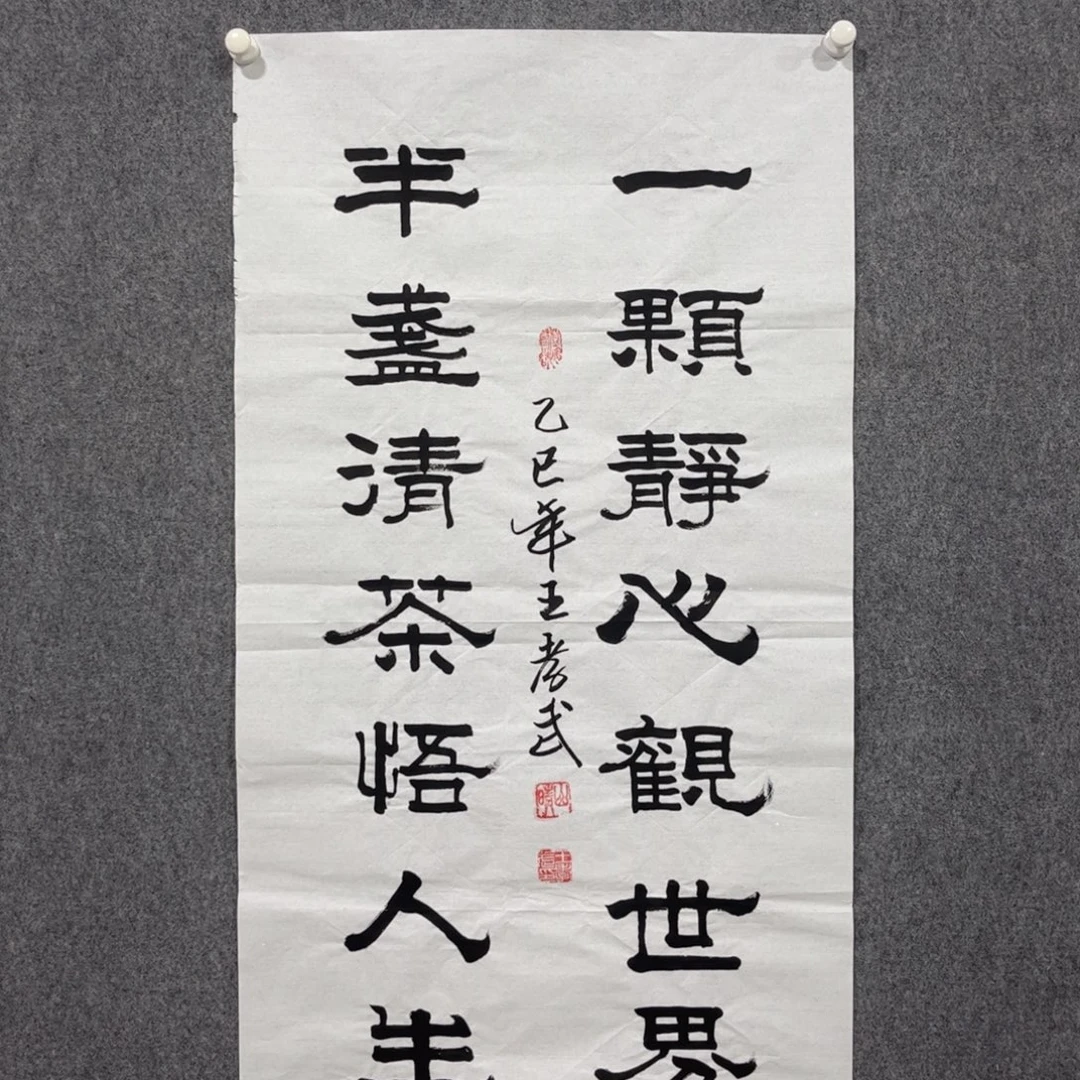 一顆靜心觀世界
半盞清茶悟人生
乙巳年王孝武